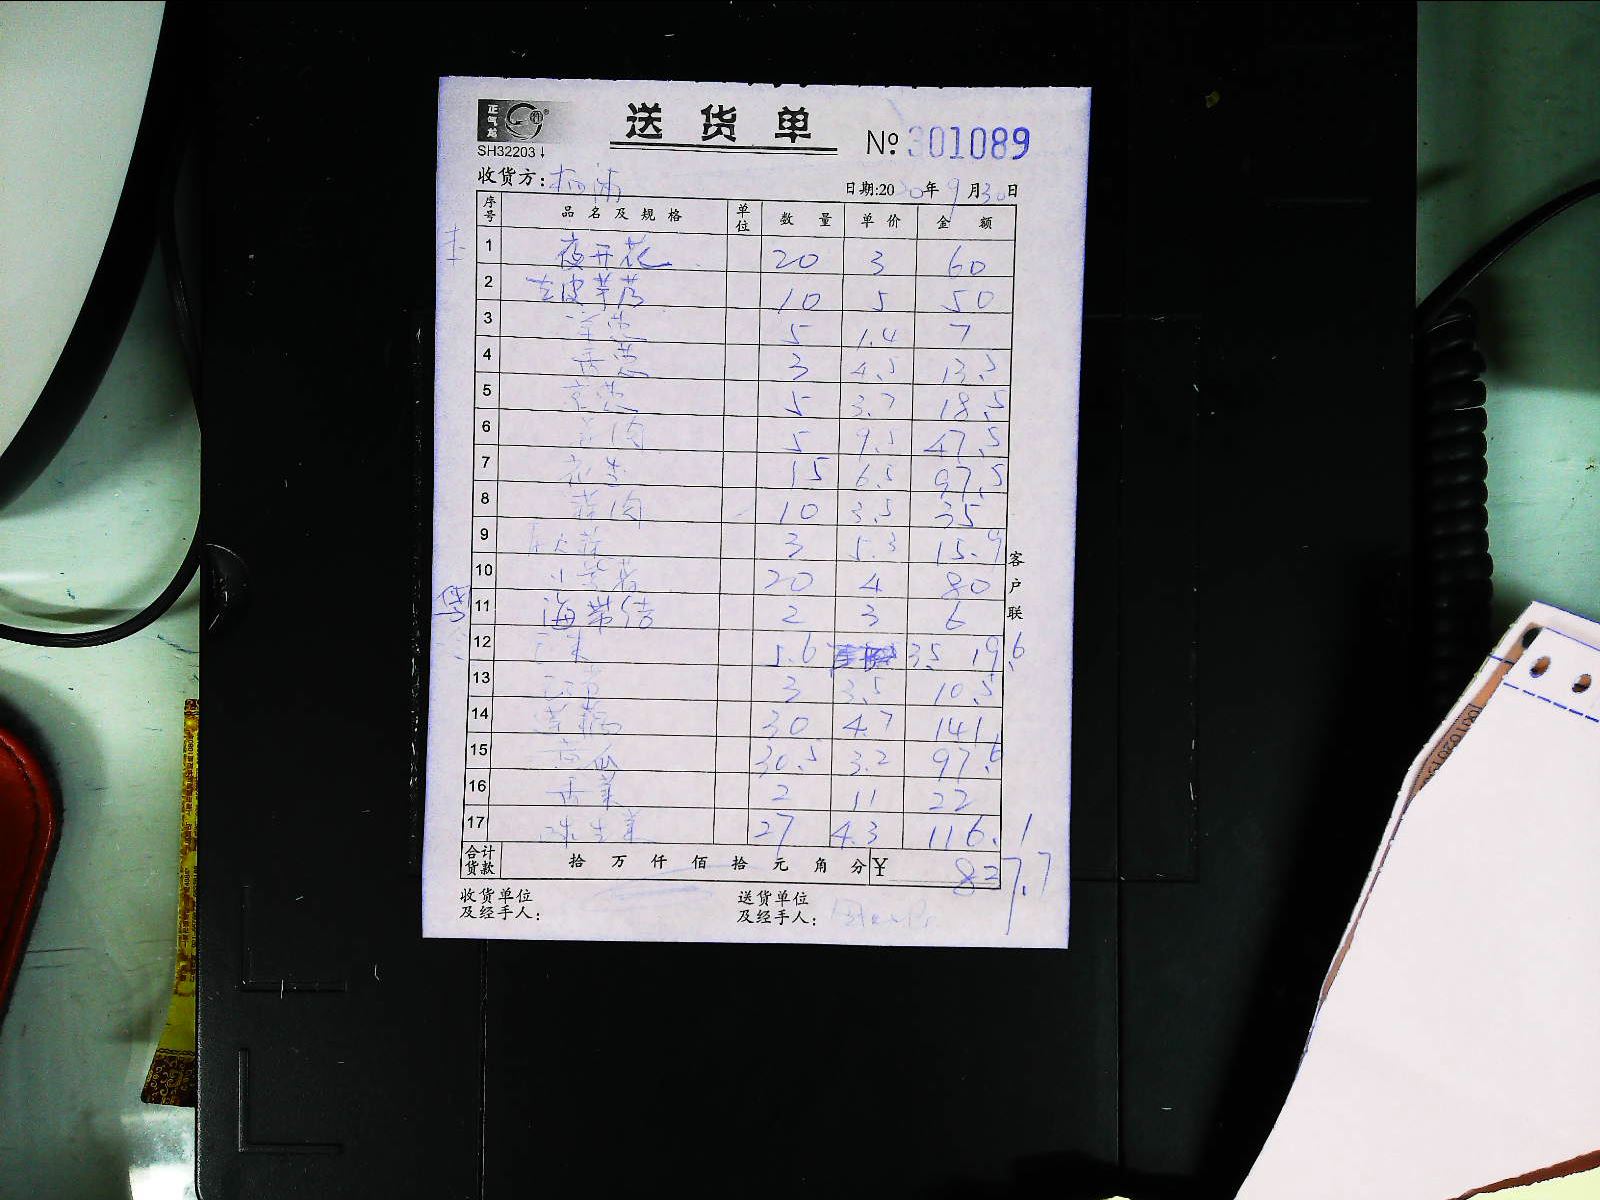 正气龙
SH32203
送货单
№ 301089
收货方:
日期:2020年9月30日
序号 品名及规格 单位 数量 单价 金额
1 夜开花 20 3 60
2 去皮芋艿 10 5 50
3 洋葱 5 1.4 7
4 香葱 3 4.5 13.5
5 京葱 5 3.7 18.5
6 5 9.5 47.5
7 花生 15 6.5 97.5
8 蒜肉 10 3.5 35
9 3 5.3 15.9
10 20 4 80
11 海带结 2 3 6
12 5.6 3.5 19.6
13 3 3.5 10.5
14 30 4.7 141
15 黄瓜 30.5 3.2 97.6
16 香菜 2 11 22
17 球生菜 27 4.3 116.1
合计货款 拾 万 仟 佰 拾 元 角 分 ¥ 837.7
客户联
收货单位及经手人:
送货单位及经手人: